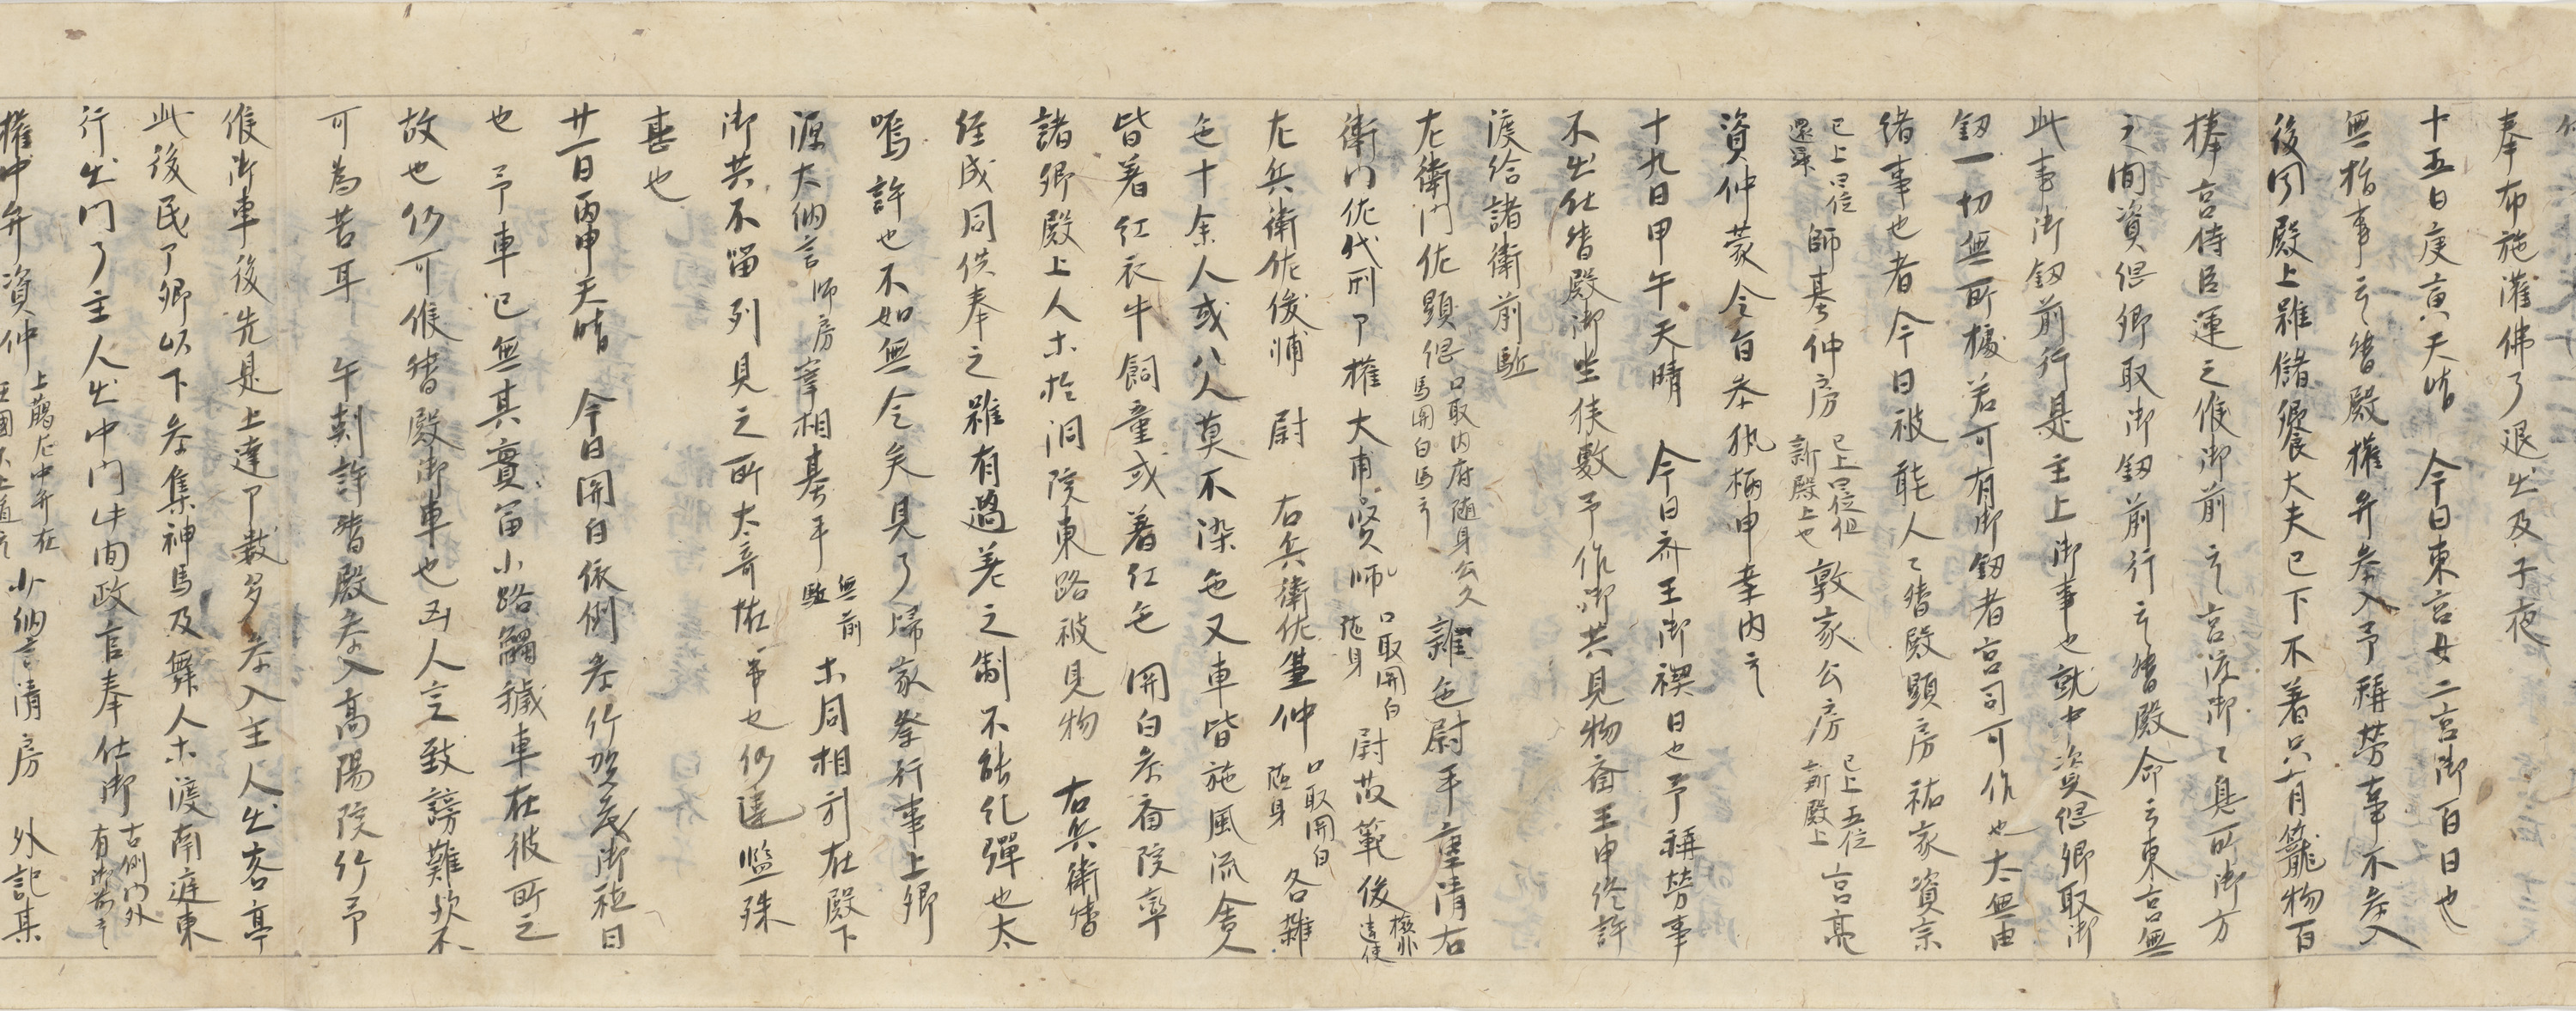 奉布施灌佛了退出及子夜
十五日庚寅天晴　今日東宮女二宮御百日也
無指事云々殿權弁参入予稱勞事不参入
後聞殿上雖儲饗大夫已下不着只有籠物百
捧宮侍臣運之候御前云宮渡御々息所御方
之間資綱卿取御釼前行云々殿命云東宮無
此事御釼前行是主上御事也就中資綱卿取御
釼一切無所據若可有御釼者宮司可作也太無由
緒事也者今日被能人々殿顕房祐家資宗
已上四位還昇　師基仲房　已上四位但新殿上也　敦家公房　已上五位新殿上　宮亮
資仲蒙令旨参執柄申案内云
十九日甲午天晴　今日斎王御禊日也予稱勞事
不出仕殿御坐棧敷予作御共見物斎王申終許
渡給諸衛前駈
左衛門佐顕綱　只取内府随身公久馬関白馬云　雑色尉平章清右
衛門佐代刑了權大甫賢師　只取関白随身　尉範俊　檢非違使
左兵衛佐俊輔　尉　右兵衛佐基仲　只取関白随身　各雜
色十余人或八人莫不染色又車皆施風流舎人
皆着紅衣牛飼童或着紅色関白参斎院率
諸卿殿上人等於洞院東路被見物　右兵衛督
経成同供奉之雖有過差之制不能糺彈也太
嗚許也不如無令矣見了歸家祭行事上卿
源大納言師房宰相基平　無前駈　等同相引在殿下
御共不留列見之所太奇怪事也仍違濫殊
甚也
廿一日丙申天晴　今日関白依例参行賀茂御社日
也　予車已無其實富小路觸穢車在彼所之
故也仍可候殿御車也酉人之致謗難歟不
可為苦耳　午剋許殿参入高陽院行予
候御車後先是上達了數多参入主人出客亭
此後民了卿以下参集神馬及舞人等渡南庭東
行出門了主人出中門此間政官奉仕御　古例内外有御前云
權中弁資仲　上﨟左中弁在　少納言清房　外記某